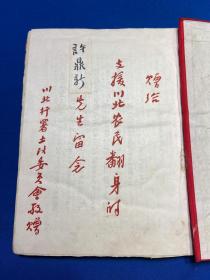 赠给
支援川北农民翻身的
許鼎新先生留念
川北行署土改委员會敬赠